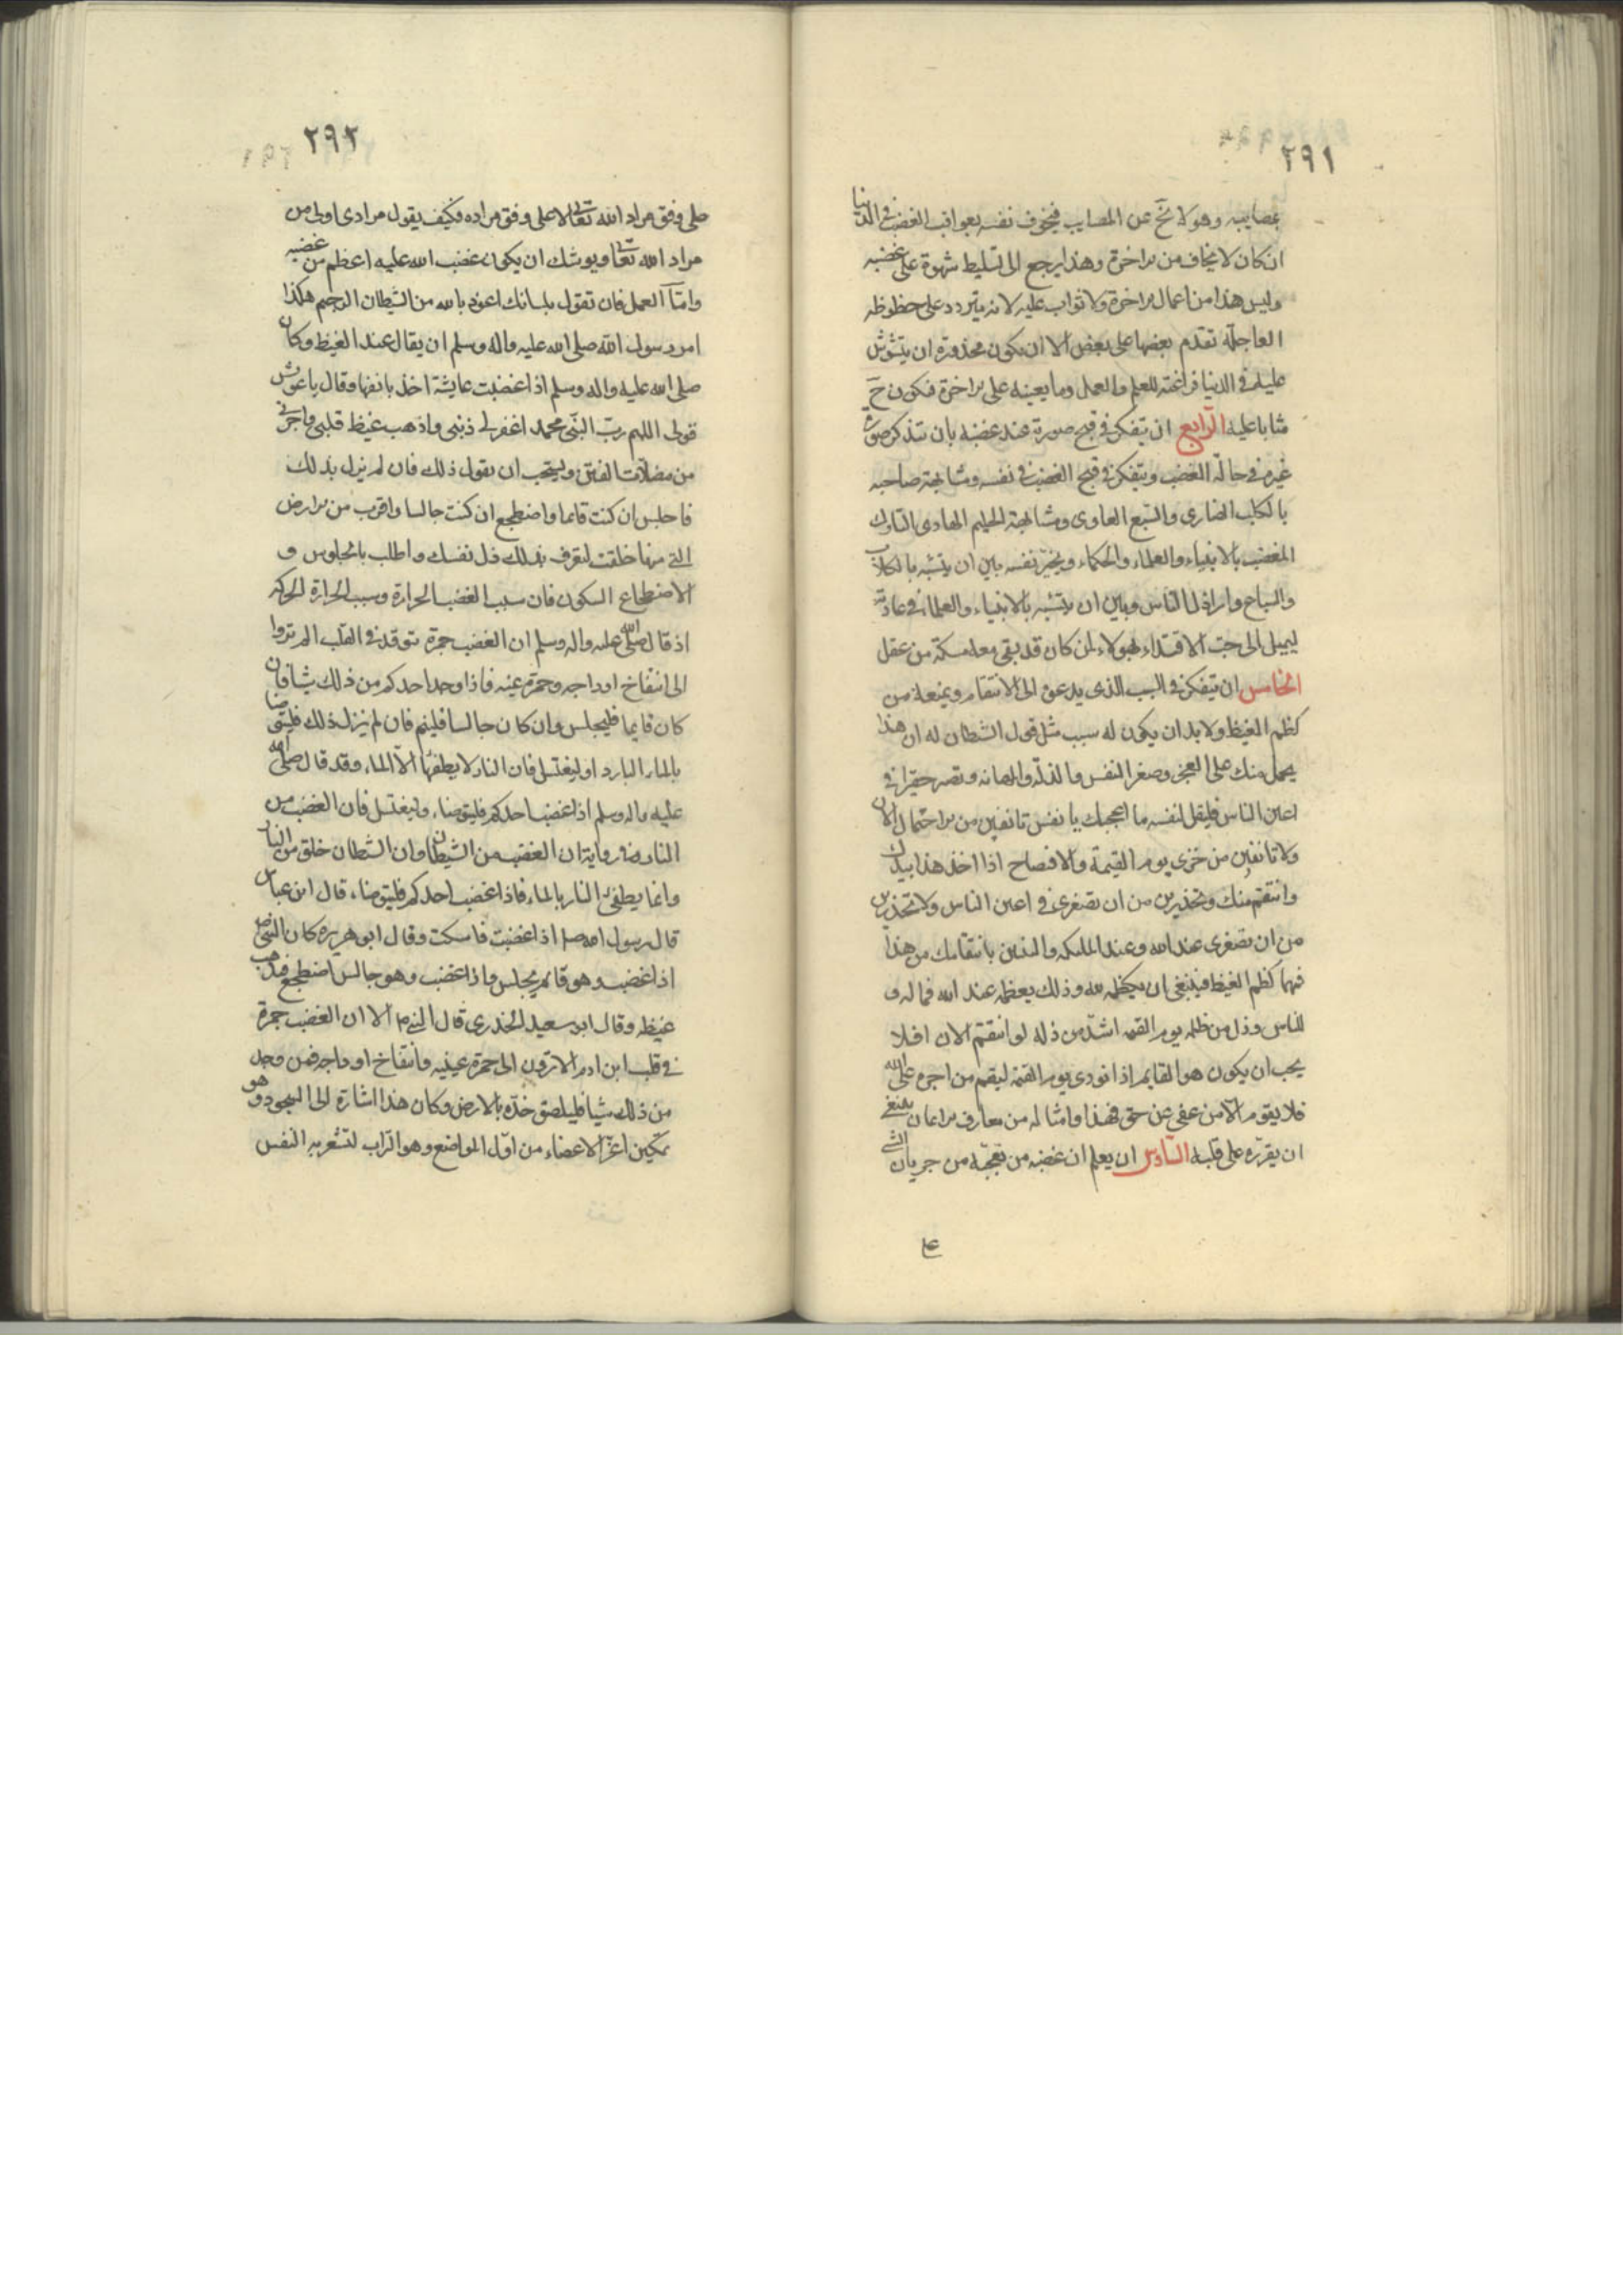 ٢٩١
بمصايبه وهو لا يخ عن المصايب فيخوف نفسه بعواقب الغضب في الدنيا
ان كان لا يخاف من الاخرة وهذا يرجع الى تسليط شهوة على غضبه
وليس هذا من اعمال الاخرة ولا ثواب عليه لانه يتردد على حظوظه
العاجلة تقدم بعضها على بعض الا ان يكون محذوره ان يتشوش
عليه في الدنيا فراغته للعلم والعمل وما يعينه على الاخرة فكون ح
مثابا عليه الرابع ان يتفكر في قبح صورة عند غضبه بان يتذكر صورة
غيره في حالة الغضب ويتفكر في قبح الغضب في نفسه ومشابهة صاحبه
بالكلب الضاري والسبع العاوى ومشابهة الحليم الهادى التارك
الغضب بالانبياء والعلماء والحكماء ويخير نفسه بين ان يتشبه بالكلاب
والسباع واراذل الناس وبين ان يتشبه بالانبياء والعلماء في عادته
ليميل الى حب الاقتداء بهولاء ان كان قد بقى معه مسكة من عقل
الخامس ان يتفكر في السبب الذى يدعوه الى الانتقام ويمنعه من
كظم الغيظ ولا بد ان يكون له سبب مثل قول الشطان له ان هذا
يحمل منك على العجز وصغر النفس والذلة والمهانه وتصير حقيرا في
اعين الناس فليقل لنفسه ما اعجبك يا نفس تانفين من الاحتمال الان
ولا تانفين من خزى يوم القيمة والافضاح اذا اخذ هذا بيدك
وانتقم منك وتحذرين من ان تصغرى في اعين الناس ولا تحذرين
من ان تصغرى عند الله وعند الملئكه والنبيين بانتقامك من هذا
فمهما كظم الغيظ فينبغى ان يكظمه لله وذلك يعظمه عند الله فما له و
للناس وذل من ظلمه يوم القيمة اشد من ذله لو انتقم الان افلا
يحب ان يكون هو القايم اذا نودى يوم القيمة ليقم من اجره على الله
فلا يقوم الا من عفى عن حق فهذا وامثاله من معارف الايمان ينبغى
ان يقرره على قلبه السادس ان يعلم ان غضبه من تعجبه من جريان الشى
عل
٢٩٢
على وفق مراد الله تعالى لا على وفق مراده فكيف يقول مرادى اولى من
مراد الله تعالى ويوشك ان يكون غضب الله عليه اعظم من غضبه
واما العمل فان تقول بلسانك اعوذ بالله من الشيطان الرجيم هكذا
امر رسول الله صلى الله عليه واله وسلم ان يقال عند الغيظ وكان
صلى الله عليه واله وسلم اذا غضبت عايشة اخذ بانفها وقال يا عويش
قولى اللهم رب النبى محمد اغفر لى ذنبى واذهب غيظ قلبى واجرنى
من مضلات الفتن ويستحب ان يقول ذلك فان لم يزل بذلك
فاجلس ان كنت قائما واضطجع ان كنت جالسا واقرب من الارض
التى منها خلقت لتعرف بذلك ذل نفسك واطلب بالجلوس و
الاضطجاع السكون فان سبب الغضب الحرارة وسبب الحرارة الحركة
اذ قال صلى الله عليه واله وسلم ان الغضب جمرة توقد في القلب الم تروا
الى انتفاخ اوداجه وحمرة عينه فاذا وجد احدكم من ذلك شيا فان
كان قايما فليجلس وان كان جالسا فلينم فان لم يزل ذلك فليتوضا
بالماء البارد او ليغتسل فان النار لا يطفئها الا الماء وقد قال صلى الله
عليه واله وسلم اذا غضب احدكم فليتوضاء وليغتسل فان الغضب من
النار وفى رواية ان الغضب من الشيطان وان الشطان خلق من النار
وانما يطفئ النار بالماء فاذا غضب احدكم فليتوضاء قال ابن عباس
قال رسول الله صلم اذا غضبت فاسكت وقال ابو هريره كان النبى ص
اذا غضب وهو قائم يجلس واذا غضب وهو جالس اضطجع فيذهب
غيظه وقال ابو سعيد الخدرى قال النبى م الا ان الغضب جمرة
في قلب ابن ادم الا ترون الى حمرة عينيه وانتفاخ اوداجه فمن وجد
من ذلك شيا فليلصق خده بالارض وكان هذا اشارة الى السجود وهو
تمكين اعز الاعضاء من اول المواضع وهو التراب لتشعر به النفس